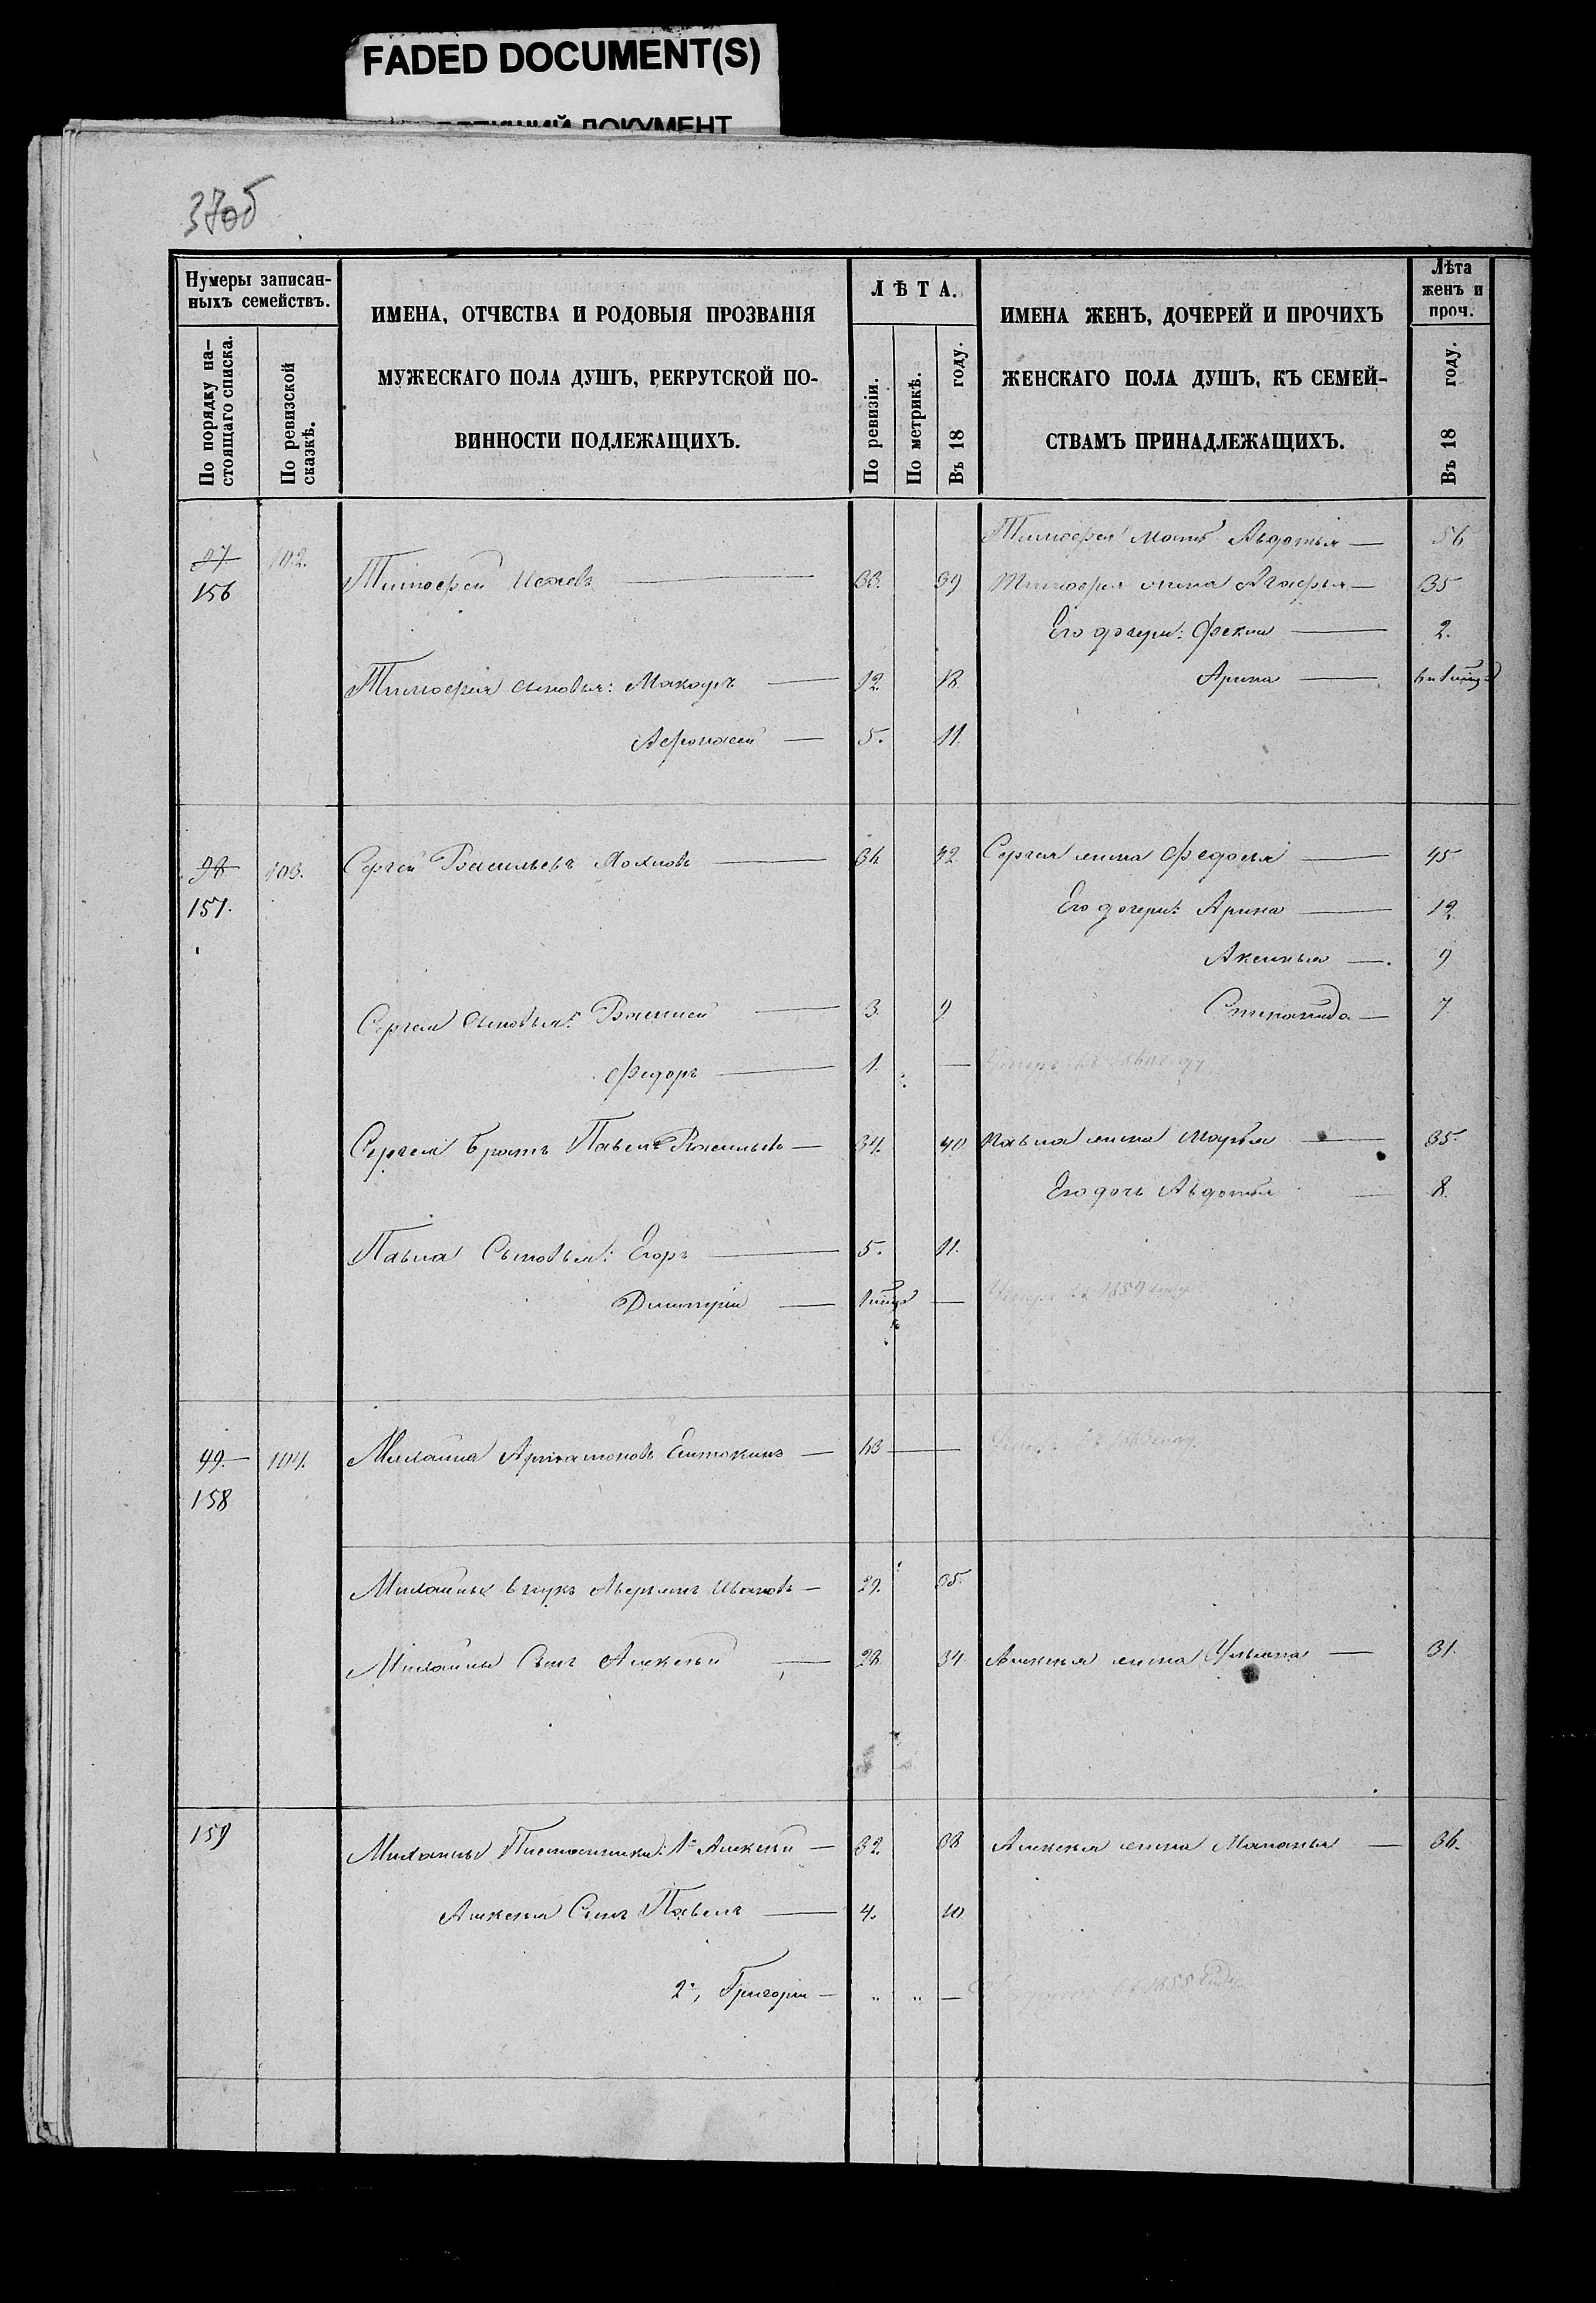 FADED DOCUMENT(S)
ДОКУМЕНТ
37об
Нумеры записан-
ныхъ семействъ.
По порядку на-
стоящаго списка.
По ревизской
сказкѣ.
ИМЕНА, ОТЧЕСТВА И РОДОВЫЯ ПРОЗВАНІЯ
МУЖЕСКАГО ПОЛА ДУШЪ, РЕКРУТСКОЙ ПО-
ВИННОСТИ ПОДЛЕЖАЩИХЪ.
ЛѢТА.
По ревизіи.
По метрикѣ.
Въ 18 году.
ИМЕНА ЖЕНЪ, ДОЧЕРЕЙ И ПРОЧИХЪ
ЖЕНСКАГО ПОЛА ДУШЪ, КЪ СЕМЕЙ-
СТВАМЪ ПРИНАДЛЕЖАЩИХЪ.
Лѣта
женъ и
проч.
Въ 18 году.
Тимофея мать Авдотья — 56
97 102. Тимофей — 33. 39 Тимофея жена Агафья — 35
156
Его дочери: Фекла — 2.
Тимофея сыновья: Макаръ — 12. 18 Арина —
Афонасей — 5. 11.
98 103. Сергей Васильевъ — 36 42 Сергея жена Федосья — 45
157.
Его дочери: Арина — 12
Аксинья — 9
Сергея сыновья: Василей — 3. 9 Степанида — 7
Федоръ — 1. —
Сергея братъ Павелъ Васильевъ — 34. 40 Павла жена Марья — 35.
Его дочь Авдотья — 8.
Павла Сыновья: Егоръ — 5. 11.
Димитрій — — 1859
99 — 104. Михайла Артамоновъ — 63 —
158
Михайлы внукъ Аверьянъ Ивановъ — 29. 35.
Михайлы Сынъ Алексей — 28 34 Алексея жена Ульяна — 31.
159 Михайлы Племянники: 1й Алексей — 32. 38 Алексея жена Маланья — 36.
Алексея Сынъ Павелъ — 4. 10
2й, Григорій — " " — 1855